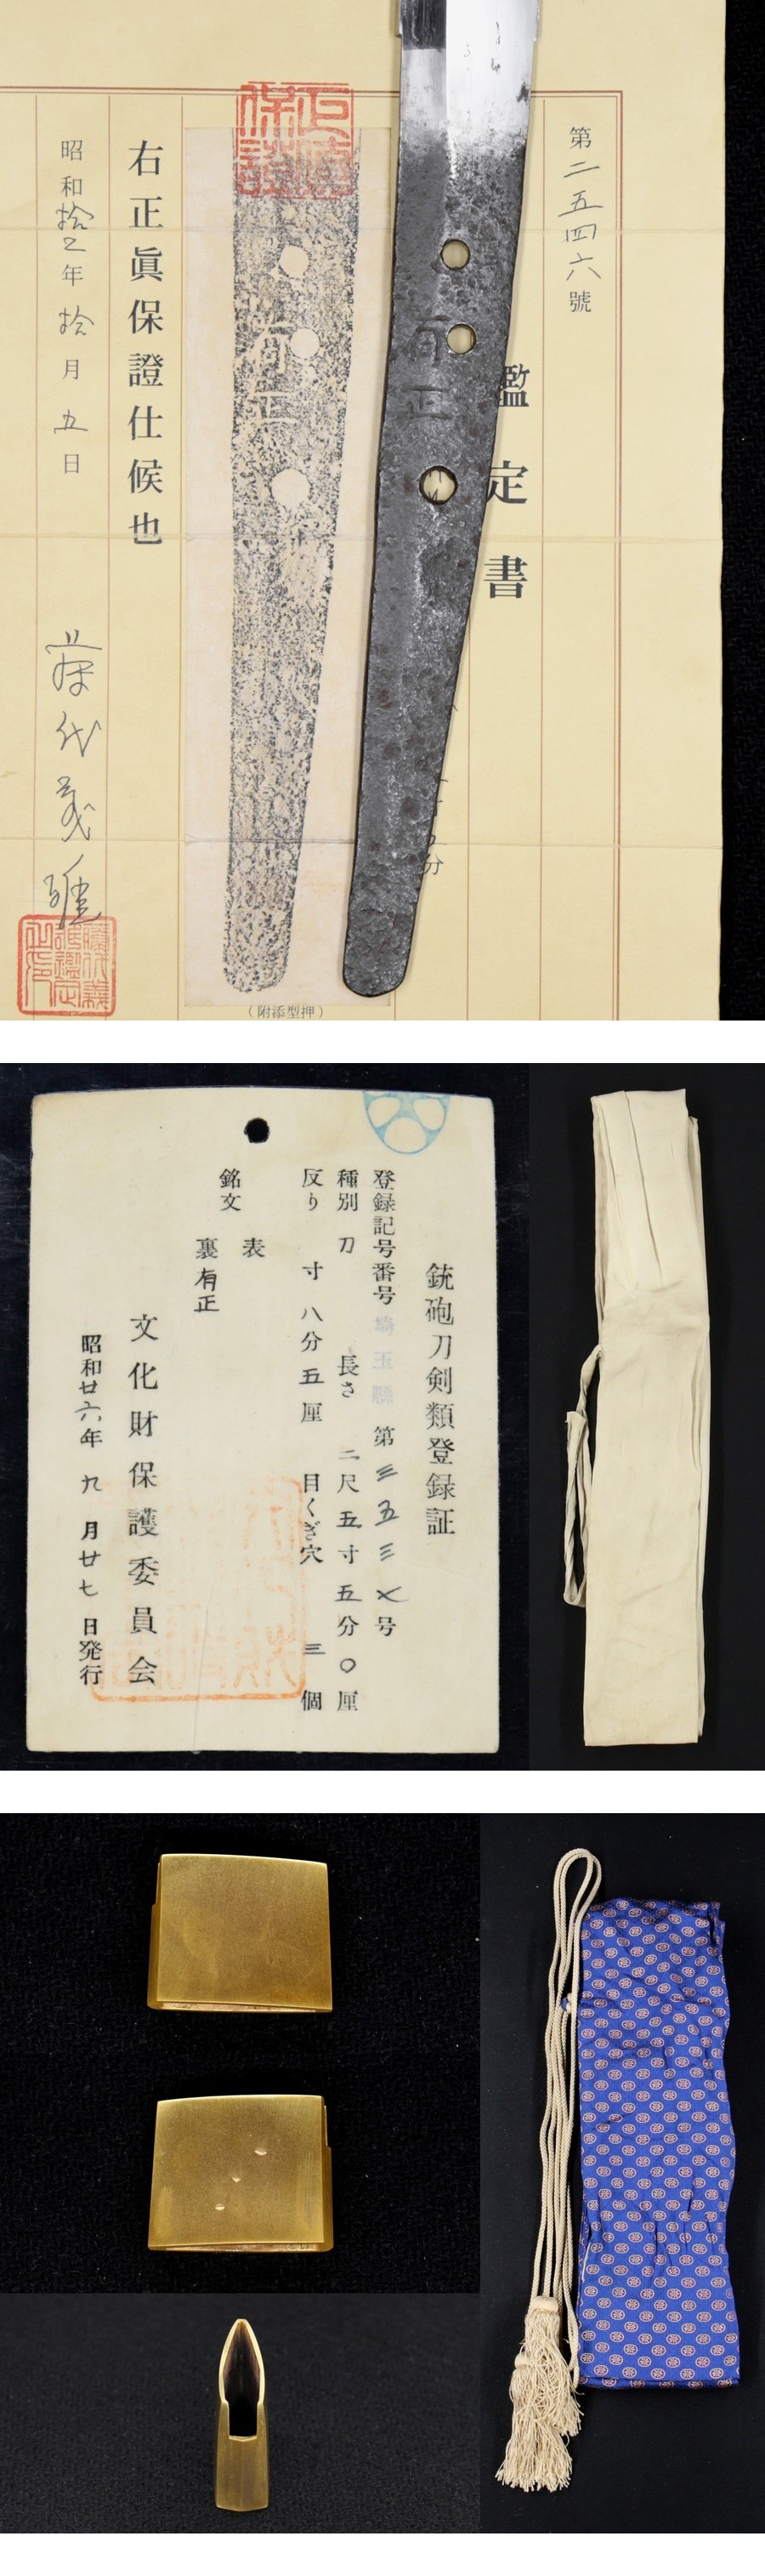 第二五四六號
鑑定書
分
有正
右正眞保證仕候也
昭和拾 年拾月五日
藤代義雄
(附添型押)
銃砲刀剣類登録証
登録記号番号 埼玉縣 第三五三 号
種別 刀 長さ 二尺五寸五分〇厘
反り 寸八分五厘 目くぎ穴 三個
銘文
表
裏 有正
文化財保護委員会
昭和廿六年九月廿七日発行